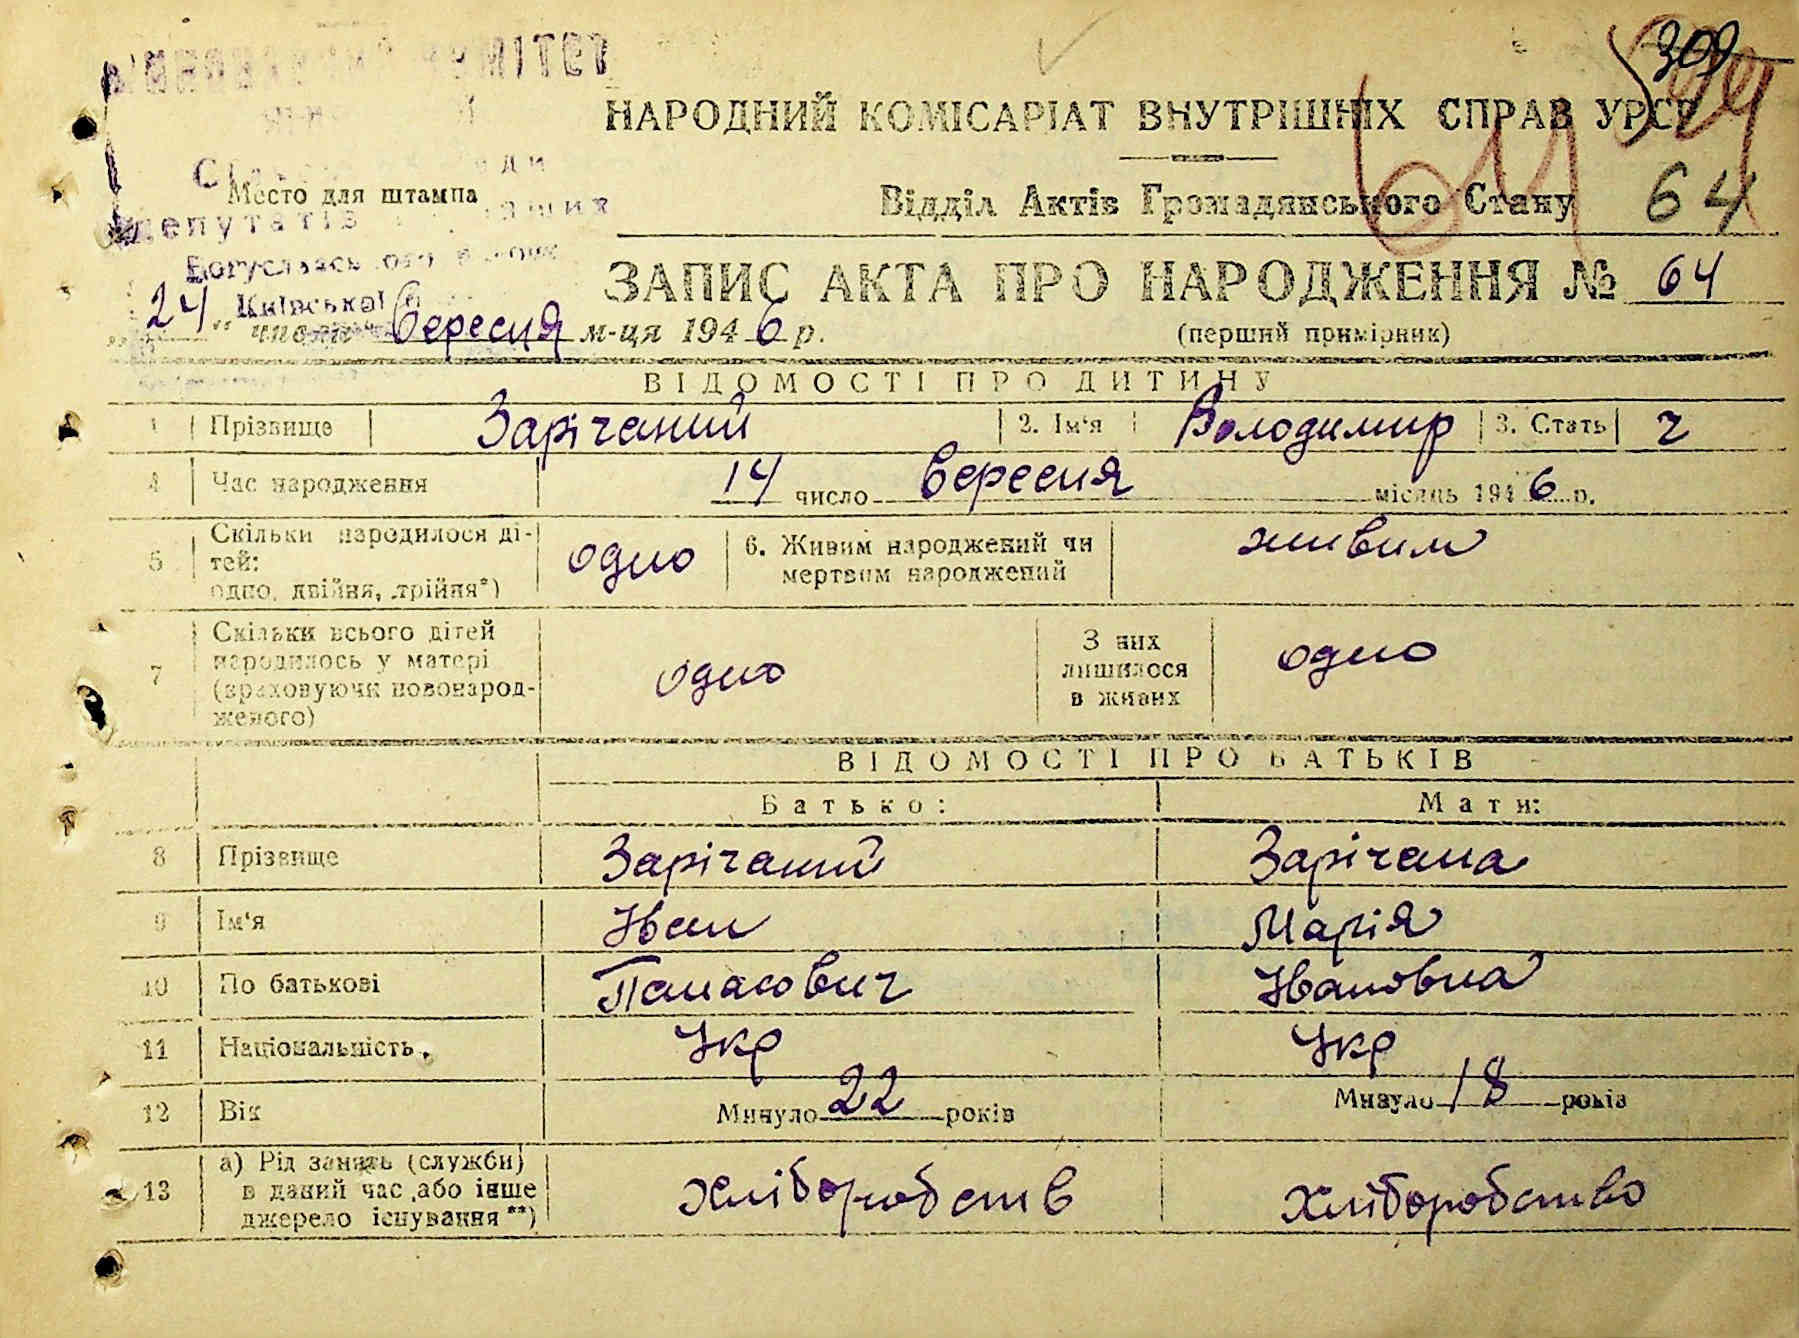 КОМІТЕТ
309
НАРОДНИЙ КОМІСАРІАТ ВНУТРІШНІХ СПРАВ УРСР
Место для штампа
Відділ Актів Громадянського Стану 64
депутатів
Богуславського
Київської
ЗАПИС АКТА ПРО НАРОДЖЕННЯ № 64
„24“ числа вересня м-ця 1946 р.
(перший примірник)
ВІДОМОСТІ ПРО ДИТИНУ
1 Прізвище Зарічаний 2. Ім'я Володимир 3. Стать ч
4 Час народження 14 число вересня місяць 1946 р.
5 Скільки народилося дітей: одно, двійня, трійня*) одно 6. Живим народжений чи мертвим народжений живим
7 Скільки всього дітей народилось у матері (враховуючи новонародженого) одно З них лишилося в живих одно
ВІДОМОСТІ ПРО БАТЬКІВ
Батько: Мати:
8 Прізвище Зарічаний Зарічана
9 Ім'я Іван Марія
10 По батькові Панасович Івановна
11 Національність Укр Укр
12 Вік Минуло 22 років Минуло 18 років
13 а) Рід занять (служби) в даний час або інше джерело існування**) хліборобств хліборобство